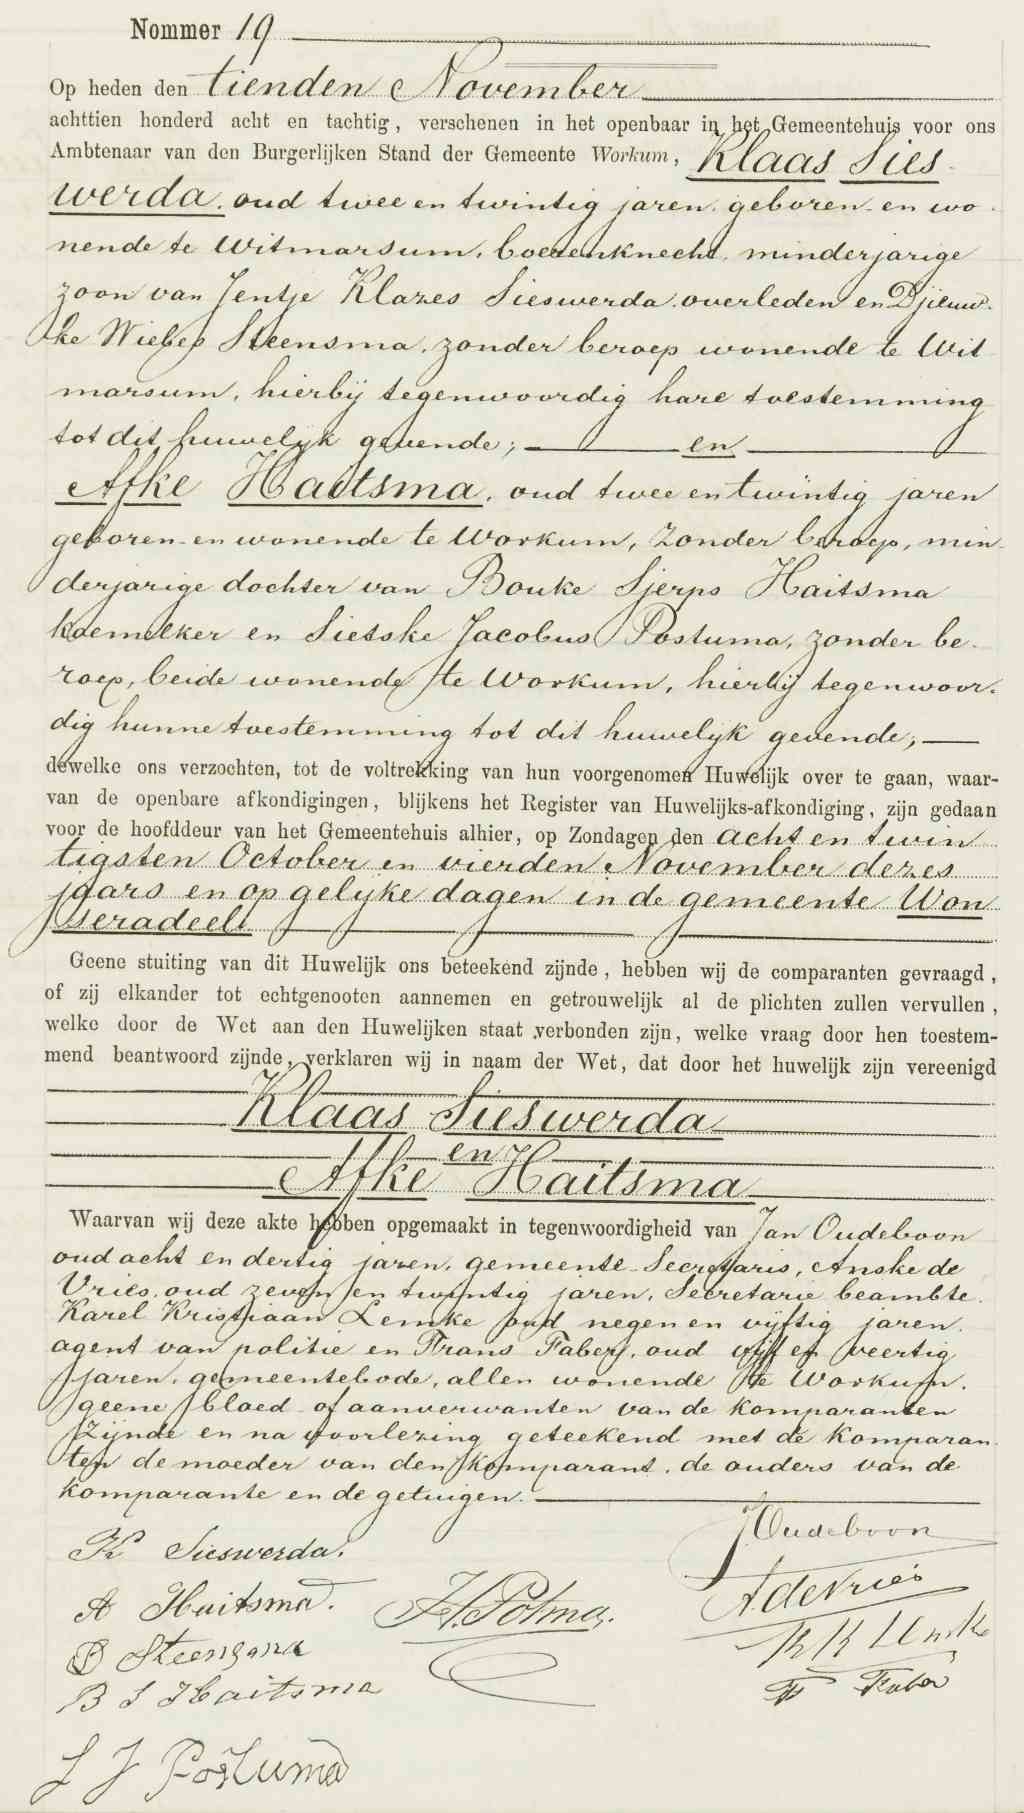 Nommer 19
Op heden den tienden November
achttien honderd acht en tachtig, verschenen in het openbaar in het Gemeentehuis voor ons
Ambtenaar van den Burgerlijken Stand der Gemeente Workum, Klaas Sies-
werda, oud twee en twintig jaren, geboren en wo-
nende te Witmarsum, boerenknecht, minderjarige
zoon van Jentje Klazes Sieswerda, overleden en Djieuw-
ke Wiebes Steensma, zonder beroep wonende te Wit
marsum, hierbij tegenwoordig hare toestemming
tot dit huwelijk gevende; en
Afke Haitsma, oud twee en twintig jaren
geboren en wonende te Workum, zonder beroep, min-
derjarige dochter van Bouke Sjerps Haitsma
koemelker en Sietske Jacobus Postuma, zonder be-
roep, beide wonende te Workum, hierbij tegenwoor-
dig hunne toestemming tot dit huwelijk gevende;
dewelke ons verzochten, tot de voltrekking van hun voorgenomen Huwelijk over te gaan, waar-
van de openbare afkondigingen, blijkens het Register van Huwelijks-afkondiging, zijn gedaan
voor de hoofddeur van het Gemeentehuis alhier, op Zondagen den acht en twin
tigsten October en vierden November dezes
jaars en op gelijke dagen in de gemeente Won
seradeel
Geene stuiting van dit Huwelijk ons beteekend zijnde, hebben wij de comparanten gevraagd,
of zij elkander tot echtgenooten aannemen en getrouwelijk al de plichten zullen vervullen,
welke door de Wet aan den Huwelijken staat verbonden zijn, welke vraag door hen toestem-
mend beantwoord zijnde, verklaren wij in naam der Wet, dat door het huwelijk zijn vereenigd
Klaas Sieswerda
en
Afke Haitsma
Waarvan wij deze akte hebben opgemaakt in tegenwoordigheid van Jan Oudeboon
oud acht en dertig jaren, gemeente-Secretaris, Anske de
Vries, oud zeven en twintig jaren, Secretarie beambte
Karel Kristiaan Lemke oud negen en vijftig jaren,
agent van politie en Frans Faber, oud vijf en veertig
jaren, gemeentebode, allen wonende te Workum,
geene bloed- of aanverwanten van de komparanten
zijnde en na voorlezing geteekend met de komparan-
ten de moeder van den komparant, de ouders van de
komparante en de getuigen.
J Oudeboon
K Sieswerda.
A Haitsma.
A. de Vries
D Steensma
K K Lemke
B S Haitsma
F Faber
S J Postuma